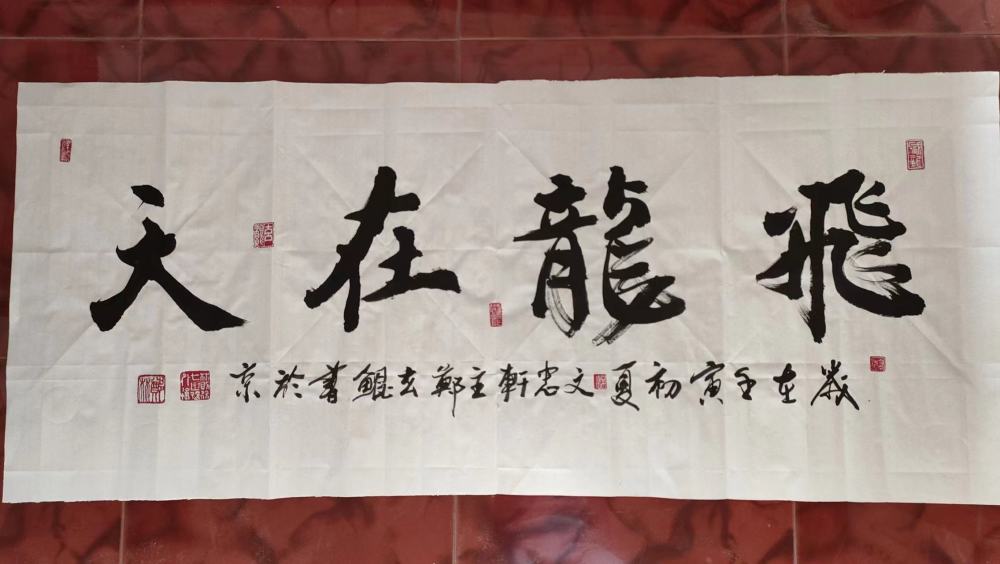 飛龍在天
歲在壬寅初夏文忠軒主鄭玄鯤書於京